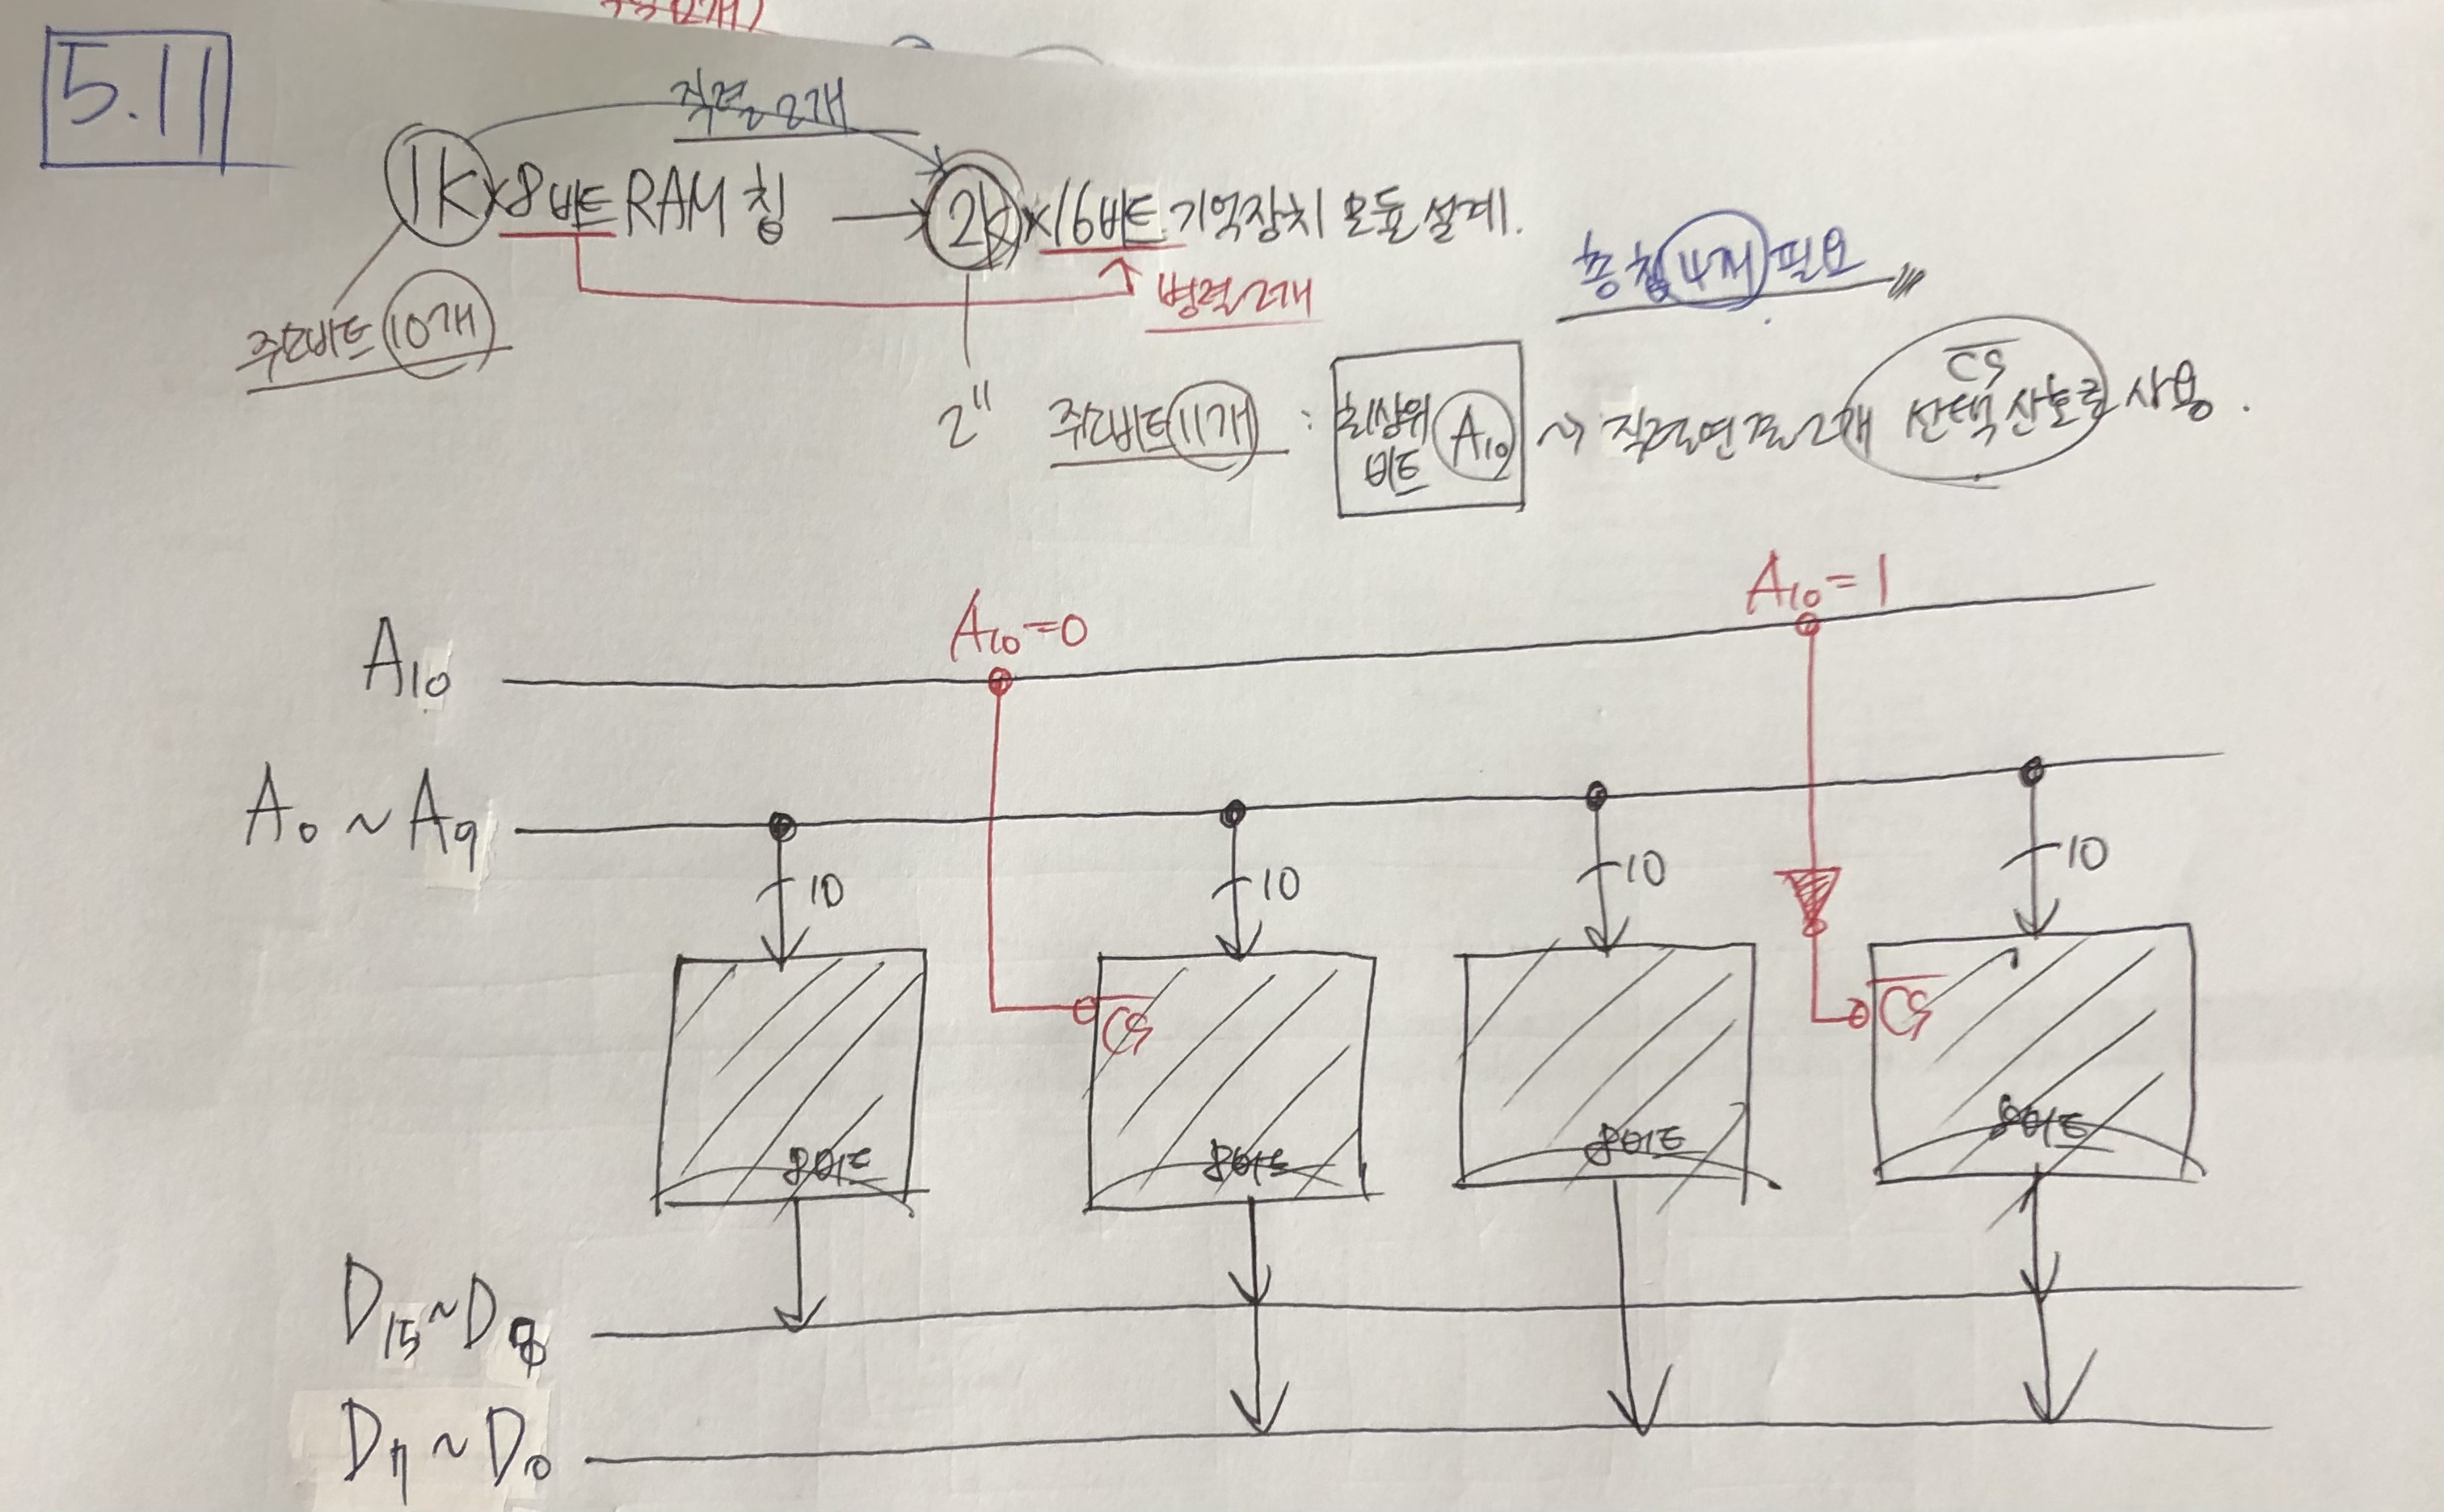 5.11
직렬 2개
1K×8비트 RAM 칩 → 2K×16비트 기억장치 모듈 설계.
병렬 2개
총 칩 4개 필요
주소비트 10개
2¹¹ 주소비트 11개 : 최상위 비트 A₁₀ ~> 직렬연결 2개 C̅S̅ 선택 신호로 사용.
A₁₀=0 A₁₀=1
A₁₀
A₀ ~ A₉
10 10 10 10
C̅S̅ C̅S̅
8비트 8비트 8비트 8비트
D₁₅~D₈
D₇ ~ D₀